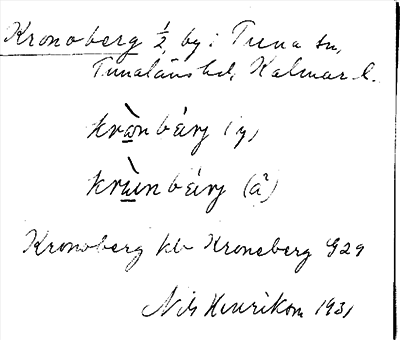 Kronoberg ½, by i Tuna sn,
Tunaläns hd, Kalmar l.
krònbærj (y)
krùnbærj (ä)
Kronoberg kb Kroneberg G29
Nils Henrikson 1931